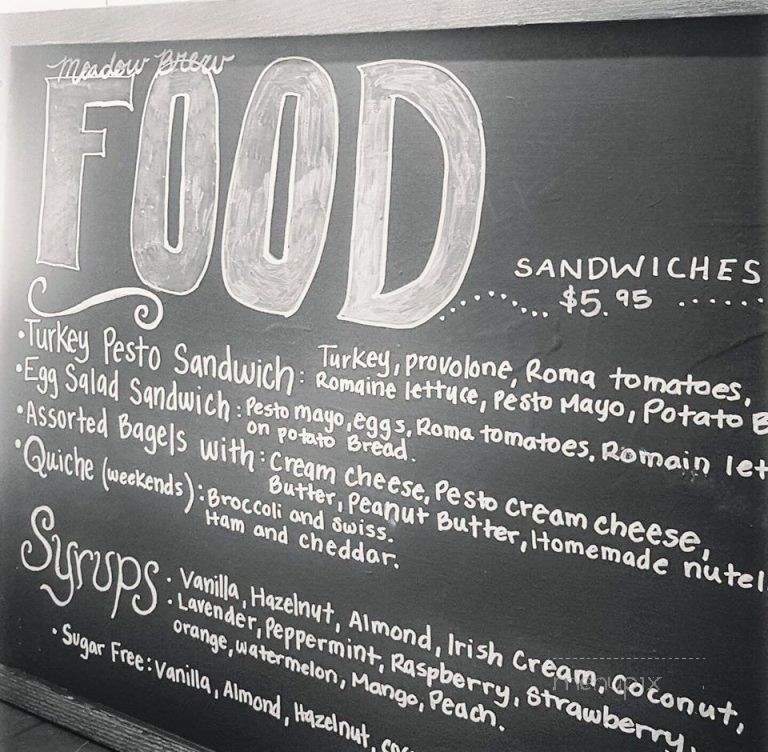 Meadow Brew
FOOD
SANDWICHES
$5.95 ......
• Turkey Pesto Sandwich: Turkey, provolone, Roma tomatoes,
Romaine lettuce, Pesto Mayo, Potato B
• Egg Salad Sandwich: Pesto mayo, eggs, Roma tomatoes, Romain let
on potato Bread.
• Assorted Bagels with: Cream cheese, Pesto cream cheese,
Butter, Peanut Butter, Homemade nutel
• Quiche (weekends): Broccoli and swiss.
Ham and cheddar.
Syrups
• Vanilla, Hazelnut, Almond, Irish Cream, Coconut,
• Lavender, Peppermint, Raspberry, Strawberry,
orange, watermelon, Mango, Peach.
• Sugar Free: Vanilla, Almond, Hazelnut, coc
menupix